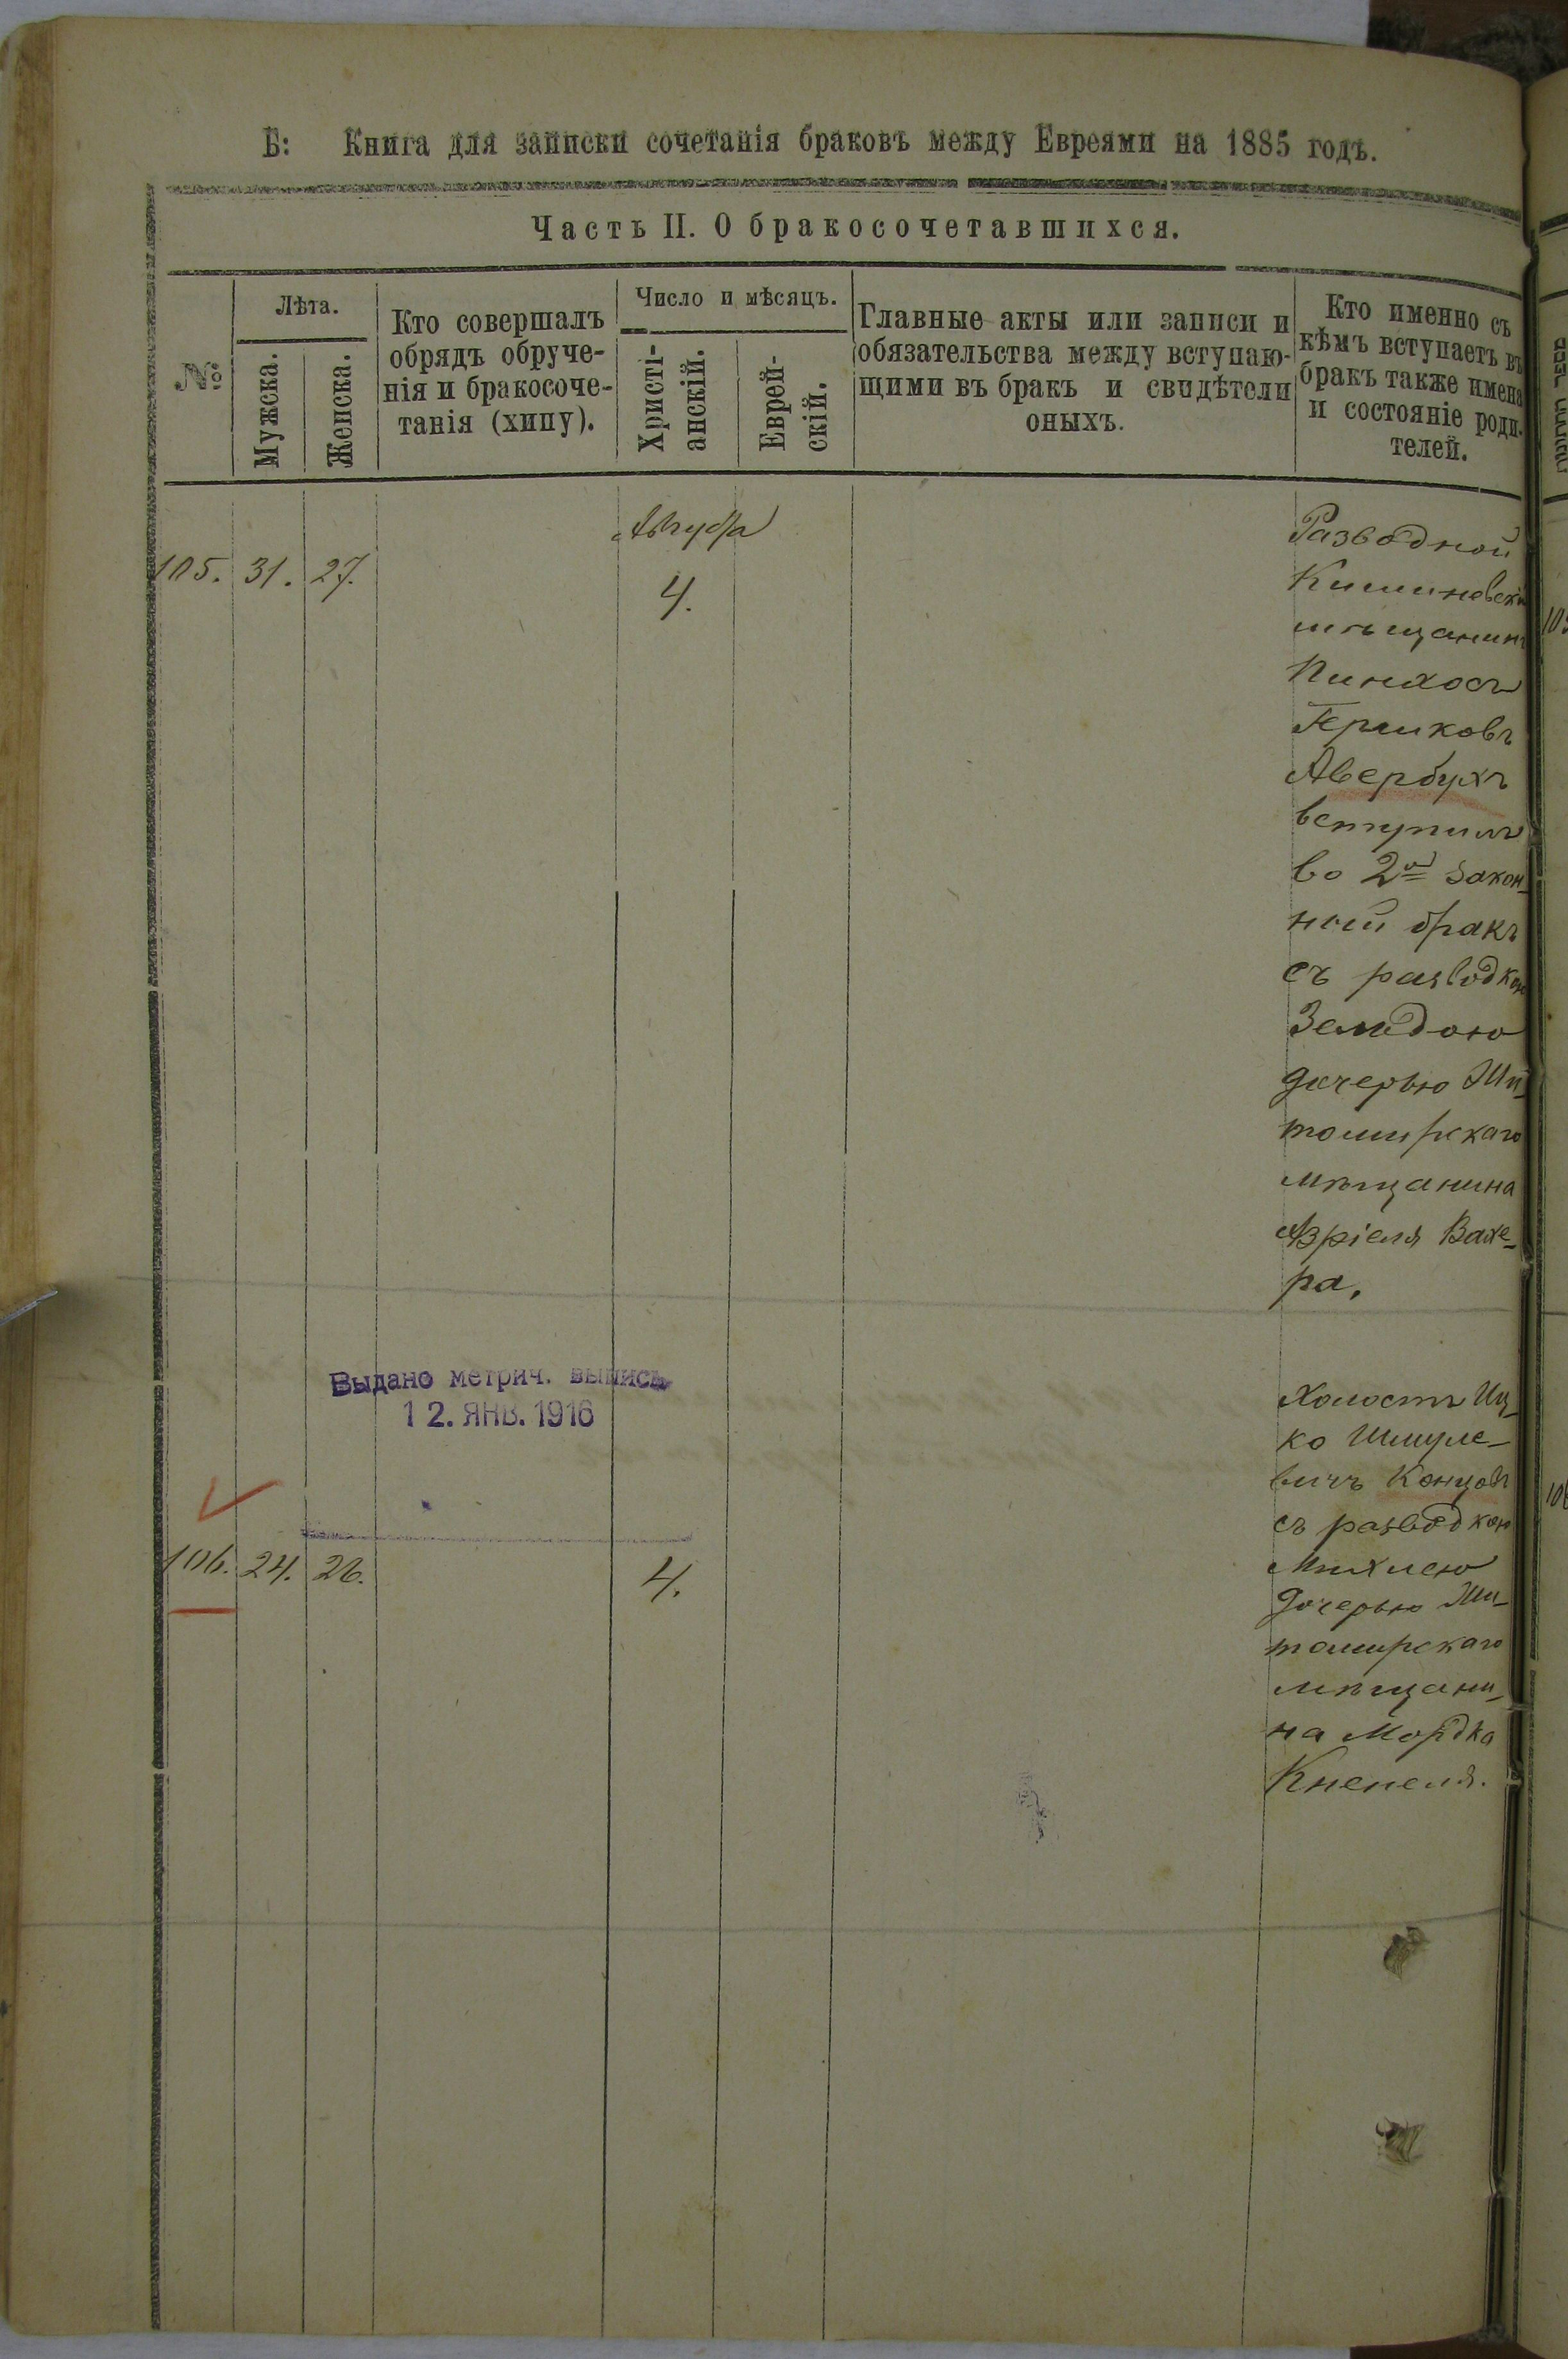 Б: Книга для записки сочетанія браковъ между Евреями на 1885 годъ.
Часть II. О бракосочетавшихся.
№
Лѣта.
Мужска.
Женска.
Кто совершалъ
обрядъ обруче-
нія и бракосоче-
танія (хипу).
Число и мѣсяцъ.
Христі-
анскій.
Еврей-
скій.
Главные акты или записи и
обязательства между вступаю-
щими въ бракъ и свидѣтели
оныхъ.
Кто именно съ
кѣмъ вступаетъ въ
бракъ также имена
и состояніе роди-
телей.
Августа
105. 31. 27. 4.
Разводной
Кишиневскій
мѣщанинъ
Пинхосъ
Гершковъ
Авербухъ
вступилъ
во 2й закон-
ный бракъ
съ разводкою
Зельдою
дочерью Жи-
томирскаго
мѣщанина
Азріеля Вахе-
ра.
Выдано метрич. выпись
12. ЯНВ. 1916
106. 24. 26. 4.
Холостъ Иц-
ко Шмуле-
вичъ Концовъ
съ разводкою
Михлею
дочерью Жи-
томирскаго
мѣщани-
на Мордка
Кнепеля.